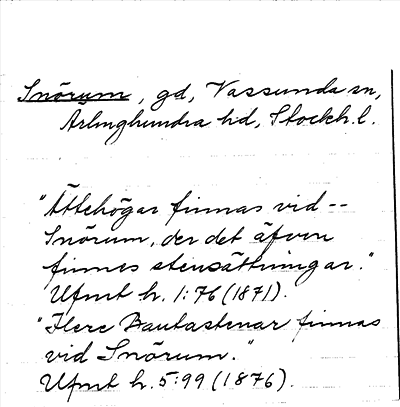 Snörum, gd, Vassunda sn,
Ärlinghundra hd, Stockh. l.
"Ättehögar finnas vid --
Snörum, der det äfven
finnes stensättningar."
Ufmt h. 1:76 (1871).
"Flere Bautastenar finnas
vid Snörum."
Ufmt h. 5:99 (1876).